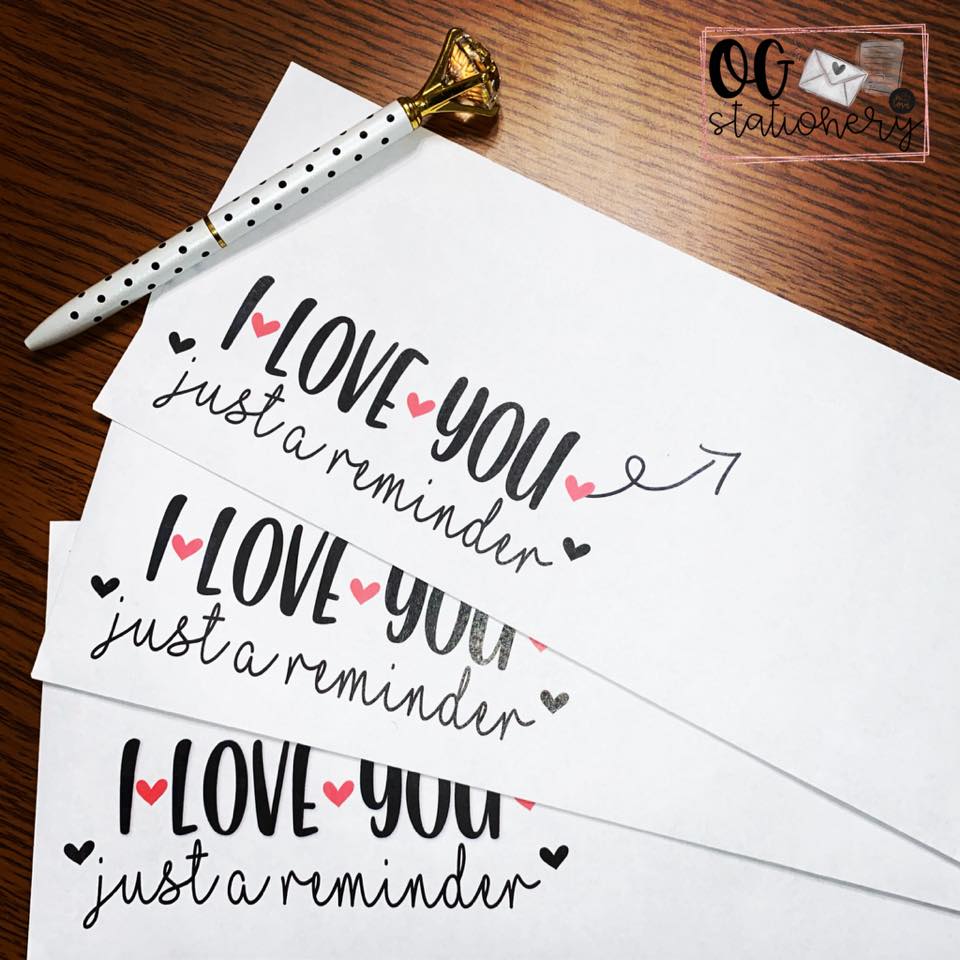 OG
stationery
I LOVE YOU
just a reminder
I LOVE YOU
just a reminder
I LOVE YOU
just a reminder